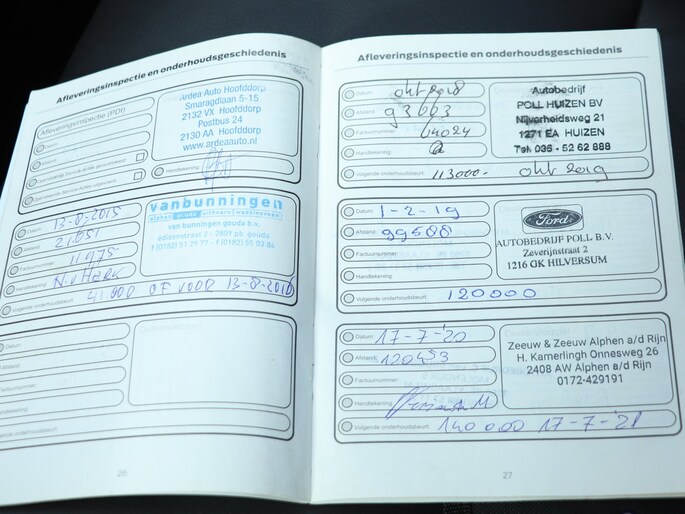 Afleveringsinspectie en onderhoudsgeschiedenis
Afleveringsinspectie (PDI)
Ardea Auto Hoofddorp
Smaragdlaan 5-15
2132 VX Hoofddorp
Postbus 24
2130 AA Hoofddorp
www.ardeaauto.nl
Handtekening
vanbunningen
van bunningen gouda b.v.
edisonstraat 2 - 2809 pb gouda
Datum: 13-8-2015
Afstand:
Factuurnummer: 11975
Handtekening:
41000 OF VOOR 13-8-2016
Datum:
Afstand:
Factuurnummer:
Handtekening:
Volgende onderhoudsbeurt:
26
Afleveringsinspectie en onderhoudsgeschiedenis
Datum: okt 2018
Afstand: 93003
Factuurnummer: 14024
Handtekening:
Volgende onderhoudsbeurt: 113000- okt 2019
Autobedrijf
POLL HUIZEN BV
Nijverheidsweg 21
1271 EA HUIZEN
Tel. 035 - 52 62 888
Datum: 1-2-19
Afstand: 99508
Factuurnummer:
Handtekening:
Volgende onderhoudsbeurt: 120000
Ford
AUTOBEDRIJF POLL B.V.
Zeverijnstraat 2
1216 GK HILVERSUM
Datum: 17-7-'20
Afstand: 120453
Factuurnummer:
Handtekening:
Volgende onderhoudsbeurt: 140000 17-7-'21
Zeeuw & Zeeuw Alphen a/d Rijn
H. Kamerlingh Onnesweg 26
2408 AW Alphen a/d Rijn
0172-429191
27